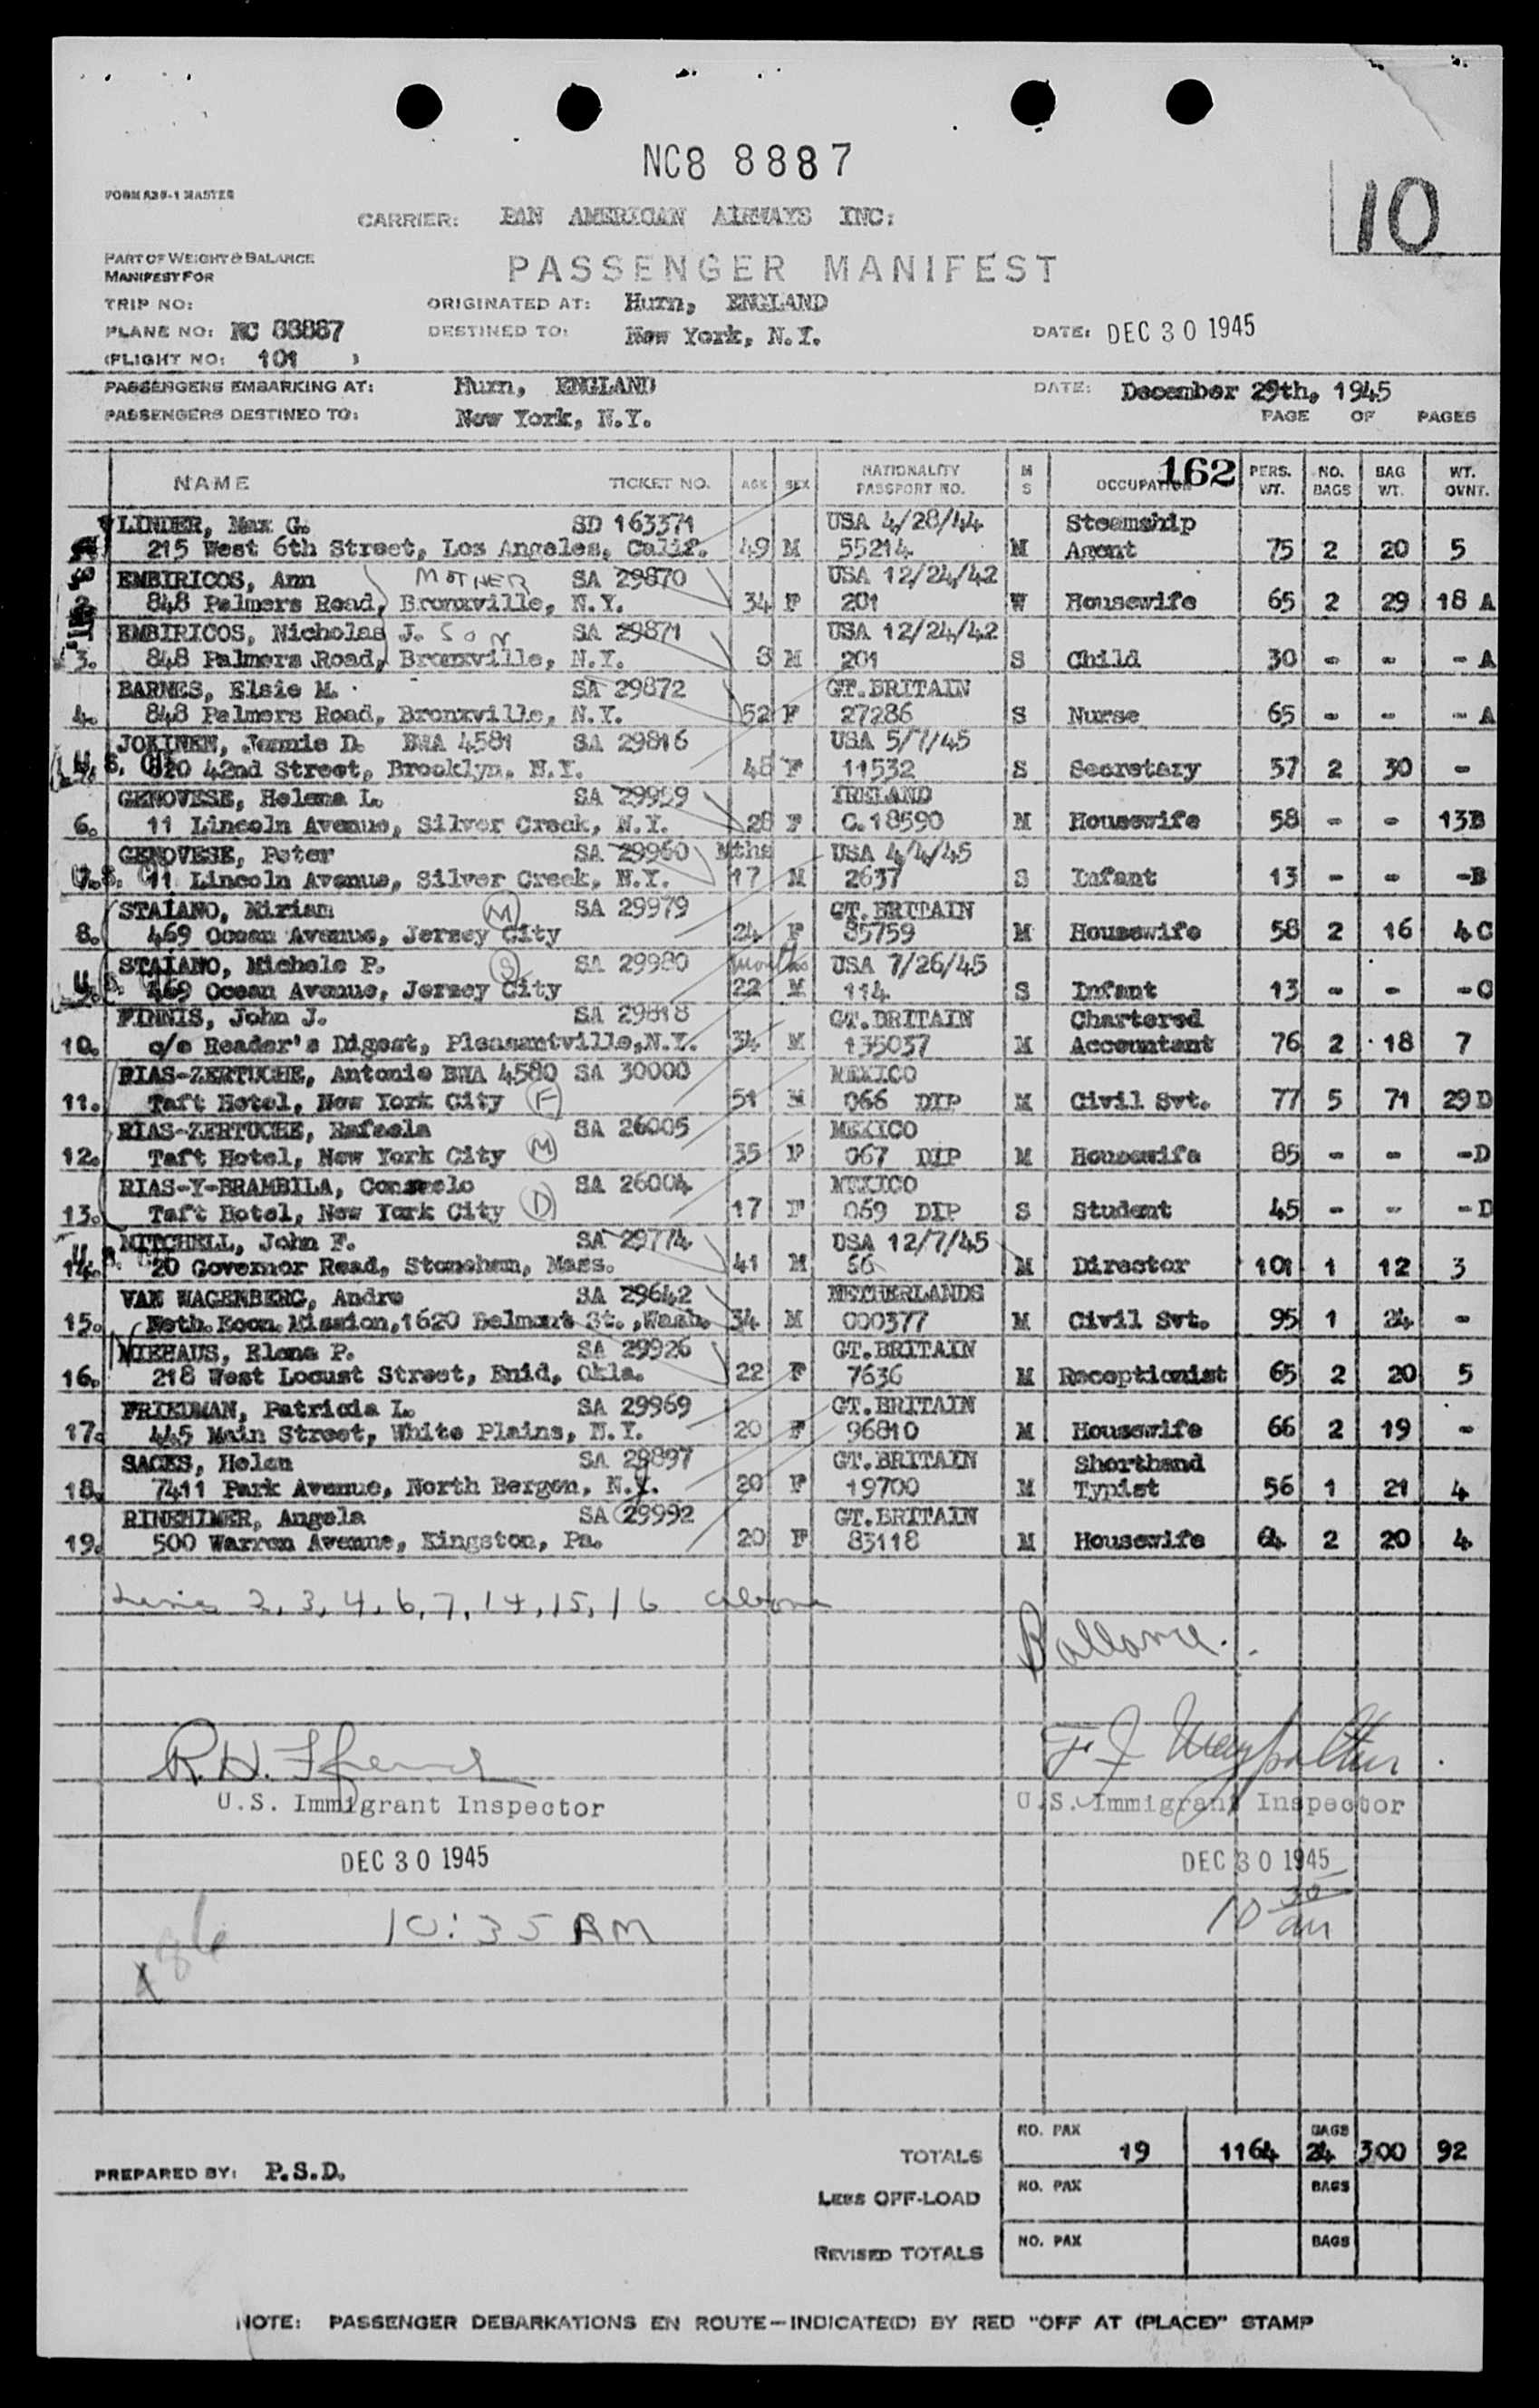 NC8 8887
10
FORM 536-1 MASTER
CARRIER: PAN AMERICAN AIRWAYS INC:
PART OF WEIGHT & BALANCE
MANIFEST FOR
PASSENGER MANIFEST
TRIP NO: ORIGINATED AT: Hurn, ENGLAND
PLANE NO: NC 88887 DESTINED TO: New York, N.Y. DATE: DEC 30 1945
(FLIGHT NO: 101 )
PASSENGERS EMBARKING AT: Hurn, ENGLAND DATE: December 29th, 1945
PASSENGERS DESTINED TO: New York, N.Y. PAGE OF PAGES
162
NAME TICKET NO. AGE SEX NATIONALITY PASSPORT NO. M S OCCUPATION PERS. WT. NO. BAGS BAG WT. WT. OVNT.
LINDER, Max G. SD 163371 USA 4/28/44 Steamship
215 West 6th Street, Los Angeles, Calif. 49 M 55214 M Agent 75 2 20 5
EMBIRICOS, Ann MOTHER SA 29870 USA 12/24/42
2. 848 Palmers Road, Bronxville, N.Y. 34 F 201 W Housewife 65 2 29 18 A
EMBIRICOS, Nicholas J. SON SA 29871 USA 12/24/42
3. 848 Palmers Road, Bronxville, N.Y. 8 M 201 S Child 30 - - - A
BARNES, Elsie M. SA 29872 GT.BRITAIN
4. 848 Palmers Road, Bronxville, N.Y. 52 F 27286 S Nurse 65 - - - A
JOKINEN, Jennie D. BWA 4581 SA 29816 USA 5/7/45
U.S.C. 820 42nd Street, Brooklyn, N.Y. 48 F 11532 S Secretary 57 2 30 -
GENOVESE, Helena L. SA 29959 IRELAND
6. 11 Lincoln Avenue, Silver Creek, N.Y. 28 F C.18590 M Housewife 58 - - 13B
GENOVESE, Peter SA 29960 Mths USA 4/4/45
7. U.S.C. 11 Lincoln Avenue, Silver Creek, N.Y. 17 M 2637 S Infant 13 - - -B
STAIANO, Miriam (M) SA 29979 GT.BRITAIN
8. 469 Ocean Avenue, Jersey City 24 F 85759 M Housewife 58 2 16 4 C
STAIANO, Michele P. (S) SA 29980 months USA 7/26/45
U.S.C. 469 Ocean Avenue, Jersey City 22 M 114 S Infant 13 - - - C
FINNIS, John J. SA 29818 GT.BRITAIN Chartered
10. c/o Reader's Digest, Pleasantville,N.Y. 34 M 135037 M Accountant 76 2 18 7
RIAS-ZERTUCHE, Antonio BWA 4580 SA 30000 MEXICO
11. Taft Hotel, New York City (F) 51 M 066 DIP M Civil Svt. 77 5 71 29 D
RIAS-ZERTUCHE, Rafaela SA 26005 MEXICO
12. Taft Hotel, New York City (M) 35 F 067 DIP M Housewife 85 - - -D
RIAS-Y-BRAMBILA, Consuelo SA 26004 MEXICO
13. Taft Hotel, New York City (D) 17 F 069 DIP S Student 45 - - - D
MITCHELL, John F. SA 29774 USA 12/7/45
14. U.S.C. 20 Governor Road, Stoneham, Mass. 41 M 56 M Director 101 1 12 3
VAN WAGENBERG, Andre SA 29642 NETHERLANDS
15. Neth.Econ.Mission,1620 Belmont St.,Wash. 34 M 000377 M Civil Svt. 95 1 24 -
NIEHAUS, Elena P. SA 29926 GT.BRITAIN
16. 218 West Locust Street, Enid, Okla. 22 F 7636 M Receptionist 65 2 20 5
FRIEDMAN, Patricia L. SA 29969 GT.BRITAIN
17. 445 Main Street, White Plains, N.Y. 20 F 96810 M Housewife 66 2 19 -
SACKS, Helen SA 29897 GT.BRITAIN Shorthand
18. 7411 Park Avenue, North Bergen, N.Y. 20 F 19700 M Typist 56 1 21 4
RINEHIMER, Angela SA 29992 GT.BRITAIN
19. 500 Warren Avenue, Kingston, Pa. 20 F 83118 M Housewife 64 2 20 4
Lines 2, 3, 4, 6, 7, 14, 15, 16 above
Ballance.
R.H.
F J
U.S. Immigrant Inspector U.S. Immigrant Inspector
DEC 30 1945 DEC 30 1945
10:35 AM 10 30 am
TOTALS NO. PAX 19 1164 BAGS 24 300 92
PREPARED BY: P.S.D.
LESS OFF-LOAD NO. PAX BAGS
REVISED TOTALS NO. PAX BAGS
NOTE: PASSENGER DEBARKATIONS EN ROUTE—INDICATE(D) BY RED "OFF AT (PLACE)" STAMP